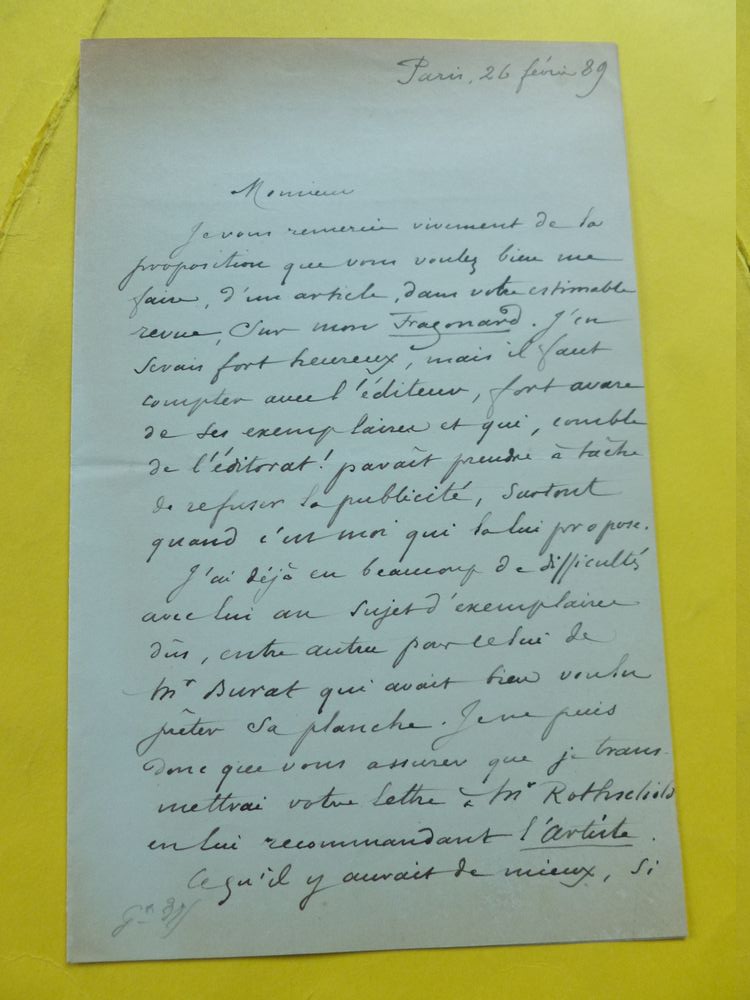 Paris, 26 février 89
Monsieur
Je vous remercie vivement de la
proposition que vous voulez bien me
faire, d'un article, dans votre estimable
revue, sur mon Fragonard. J'en
serais fort heureux, mais il faut
compter avec l'éditeur, fort avare
de ses exemplaires et qui, comble
de l'éditorat! paraît prendre à tâche
de refuser la publicité, surtout
quand c'est moi qui la lui propose.
J'ai déjà eu beaucoup de difficultés
avec lui au sujet d'exemplaires
dûs, entre autre par celui de
Mr Burat qui avait bien voulu
prêter sa planche. Je ne puis
donc que vous assurer que je trans-
mettrai votre lettre à Mr Rothschild
en lui recommandant l'Artiste.
Ce qu'il y aurait de mieux, si